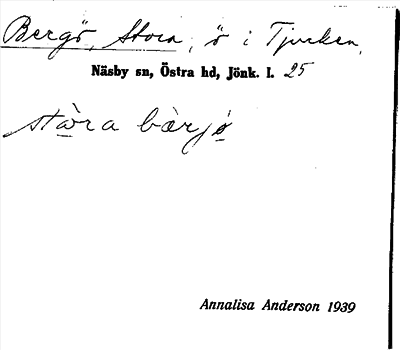 Bergö, Stora, ö i Tjurken,
Näsby sn, Östra hd, Jönk. l. 25
stàra bàrjö
Annalisa Anderson 1939